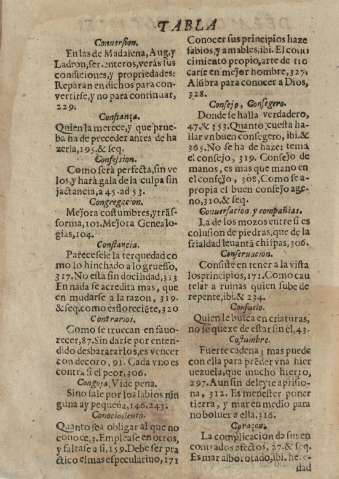 TABLA
Conuersion.
En las de Madalena, Aug. y
Ladron, ser enteros, verás sus
condiciones, y propriedades:
Reparan en dichos para con-
vertirse, y no para continuar,
229.
Confiança.
Quien la merece, y que prue-
ba ha de preceder antes de ha
zerla, 195. & seq.
Confession.
Como será perfecta, sin ve
los, y hará gala de la culpa sin
jactancia, 45. 53.
Congregacion.
Mejora costumbres, y trãs-
forma, 103. Mejora Genealo-
gias, 104.
Constancia.
Parecesele la terquedad co
mo lo hinchado a lo gruesso,
317. No està sin docilidad, 313
En nada se acredita mas, que
en mudarse a la razon, 319.
& seq. como esto recibe, 320
Contrarios.
Como se truecan en fauo-
recer, 87. Sin darse por enten-
dido desbaratarlos, es vencer
con decoro, 91. Cada vno es
contra si el peor, 306.
Congoja, Vide pena.
Sino sale por los labios nin
guna ay pequeña, 146. 243.
Conocimiento.
Quanto sea obligar al que no
conoce, 3. Emplease en otros,
y faltase a si, 159. Debe ser pra
ctico el mas especulatiuo, 171
Conocer sus principios haze
sabios, y amables, ibi. El cono
cimiento propio, arte de tro
carse en mejor hombre, 327.
Alũbra para conocer a Dios,
328.
Consejo, Consegero.
Donde se halla verdadero,
47. & 153. Quanto cuesta ha-
llar vn buen consegero, ibi. &
365. No se ha de hazer tema
el consejo, 319. Consejo de
manos, es mas que mano en
el consejo, 308. Como se a-
propia el buen consejo age-
no, 310. & seq.
Conuersacion y compañias.
La de los mozos entre si es
colusion de piedras, que de la
frialdad leuantã chispas, 306.
Conseruacion.
Consiste en tener a la vista
los principios, 171. Como cau
telar a ruinas quien sube de
repente, ibi. & 234.
Consuelo.
Quien le busca en criaturas,
no se quexe de estar sin el, 43.
Costumbre.
Fuerte cadena; mas puede
con ella para prẽder vna hier
vezuela, que mucho hierro,
297. Aun sin deleyte aprisio-
na, 312. Es menester poner
tierra, y mar en medio para
no boluer a ella, 316.
Coraçon.
La complicacion da sus en
contrados afectos, 27. & seq.
Es mar alborotado, ibi. he
dad